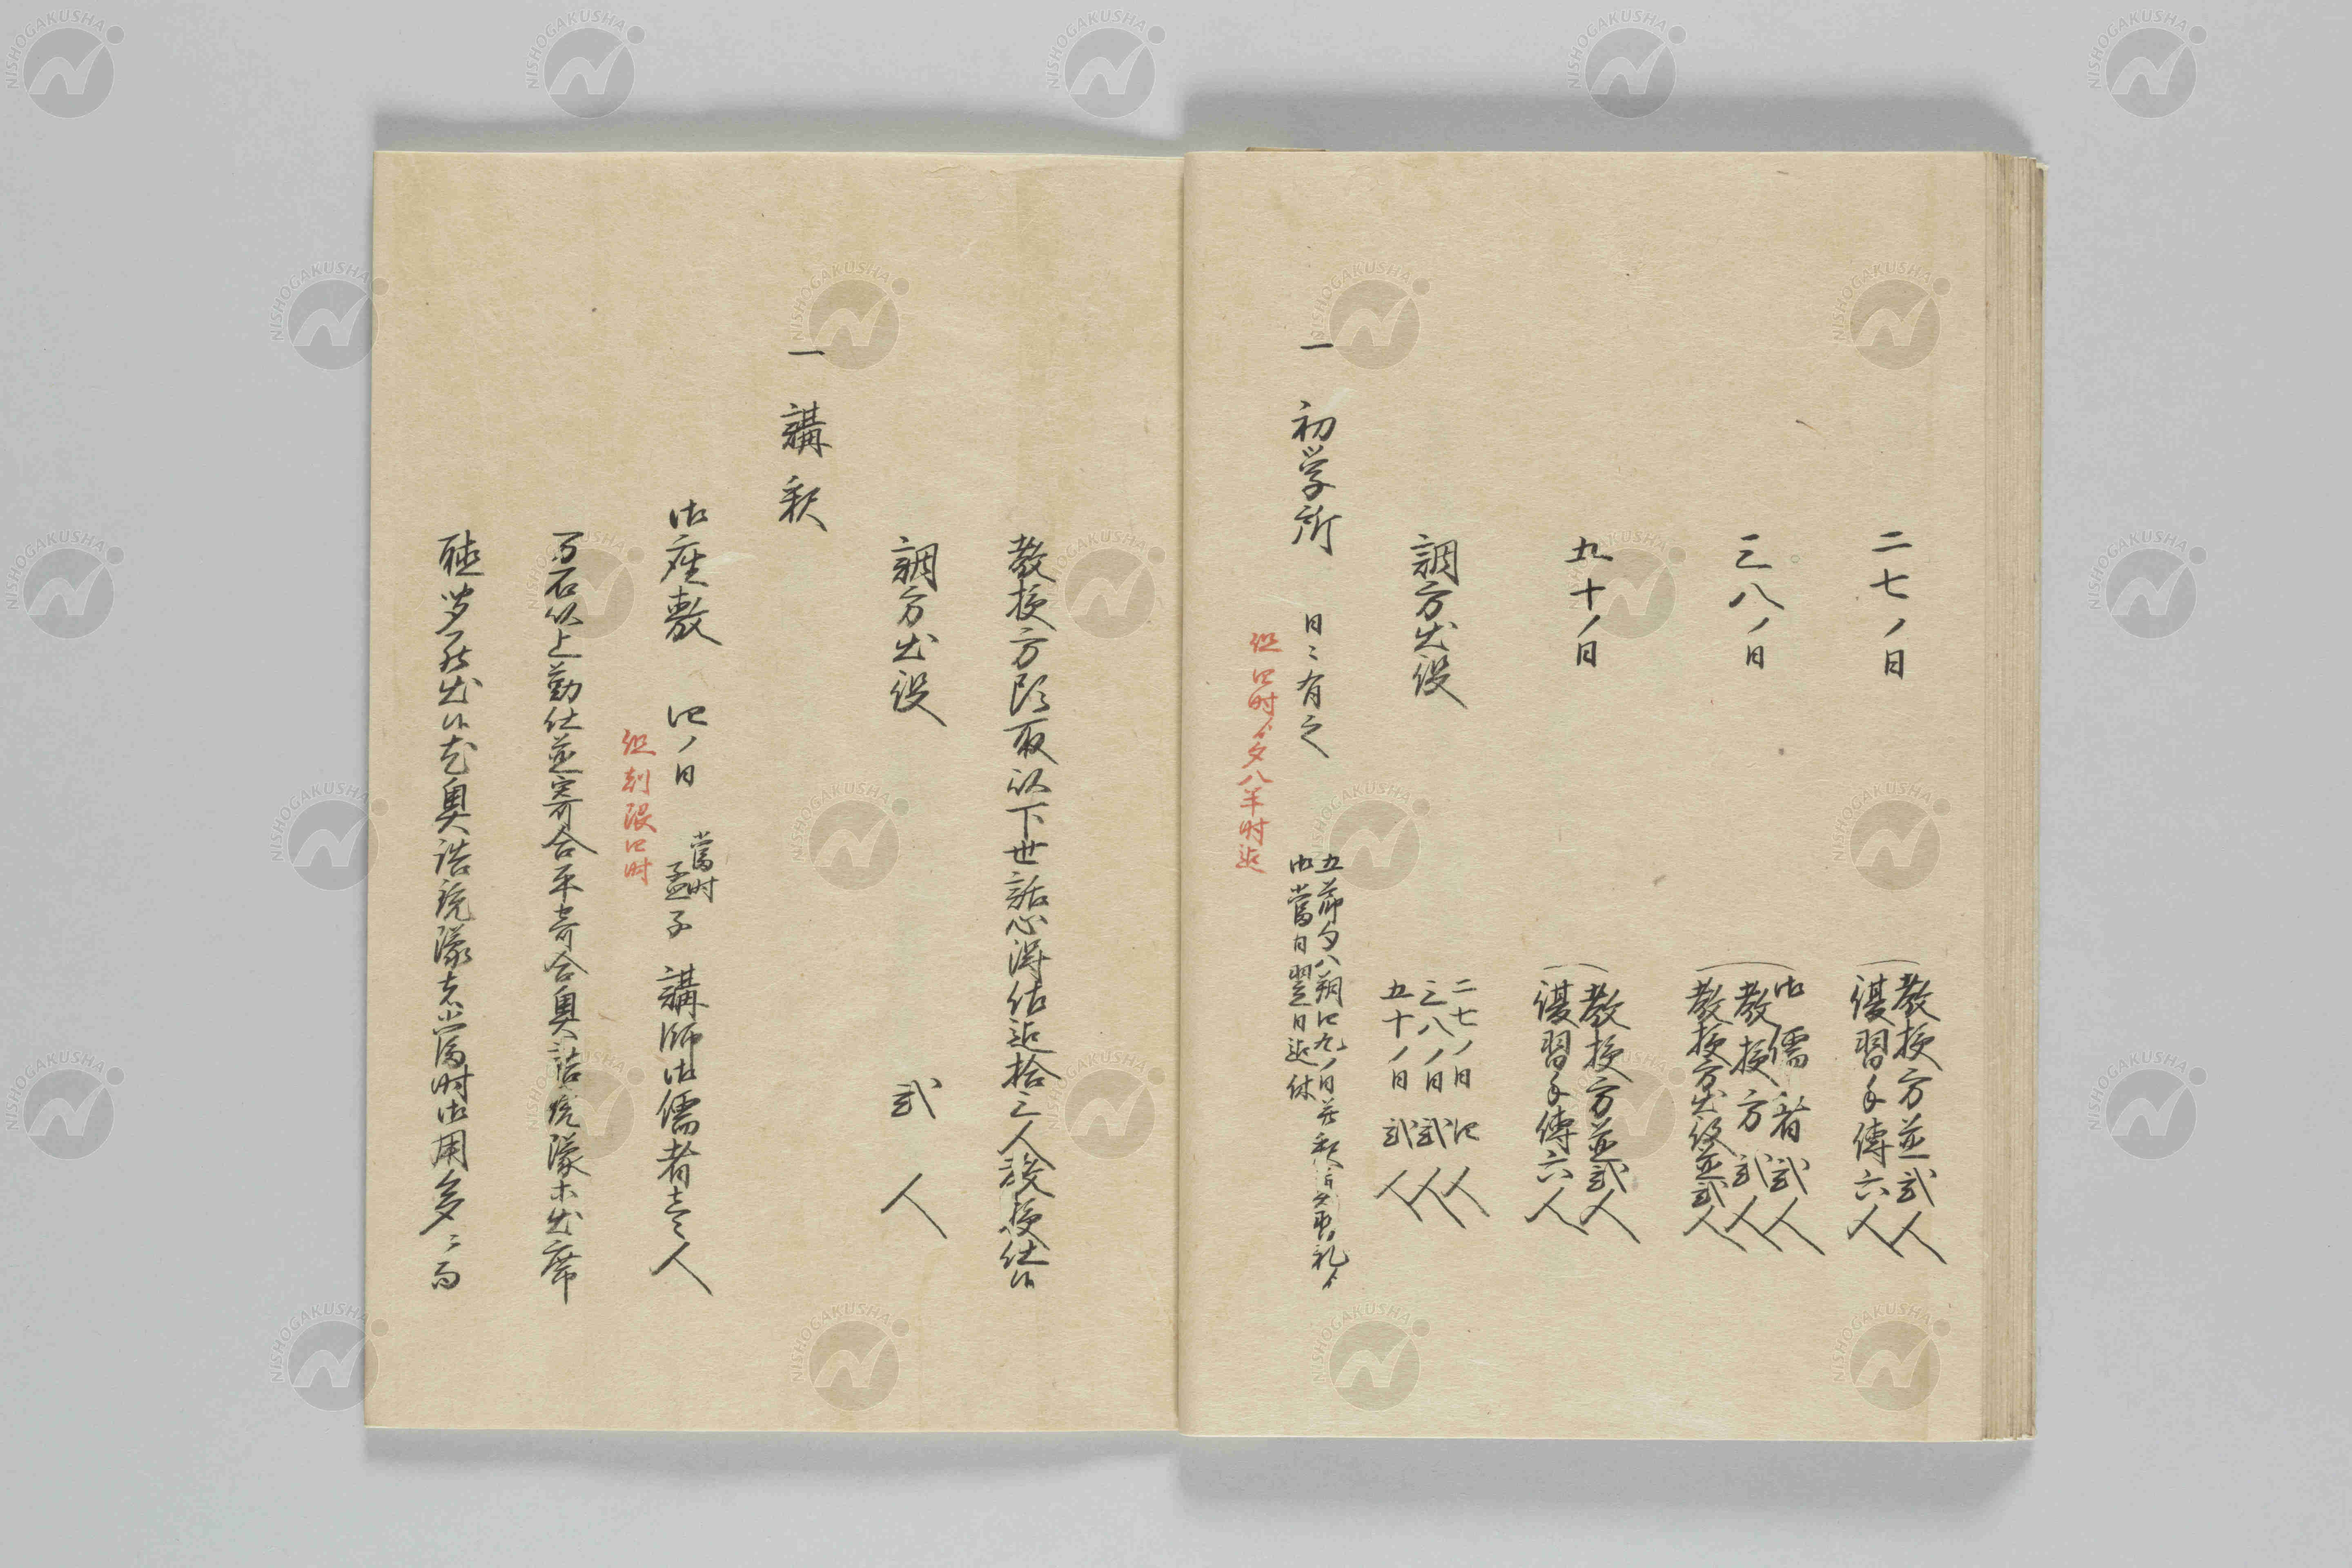 二七ノ日
教授方並弐人
復習手傳六人
三八ノ日
御儒者弐人
教授方弐人
教授方出役並弐人
五十ノ日
教授方並弐人
復習手傳六人
調方出役
二七ノ日四人
三八ノ日弐人
五十ノ日弐人
一 初学所 日々有之
五節句八朔四九ノ日並釈
御當日翌日迄休
但四時ゟ夕八半時迄
教授方頭取以下世話心得佑迄拾三人
調方出役 弐人
一 講釈
御座敷 四ノ日 當時孟子 講師御儒者壱人
但刻限四時
百石以上勤仕並寄合平寄合奥詰銃隊
奥詰銃隊
當時御用多ニ而
NISHOGAKUSHA